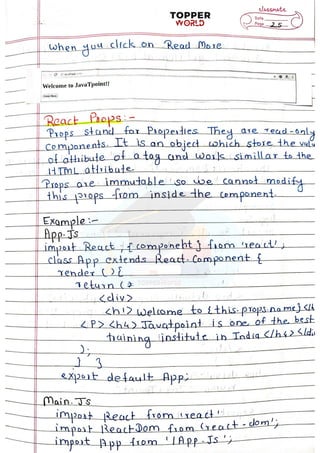 TOPPER
WORLD
classmate
Date
Page 25
When you click on Read More
Welcome to JavaTpoint!!
React Props:-
Props stand for Properties They are read-only
Components. It is an object which store the valu
of attribute of a tag and work simillar to the
HTML attribute.
Props are immutable so we cannot modify
this props from inside the component.
Example:-
App.Js
import React, { component } from 'react';
class App extends React.Component {
render () {
return (
<div>
<h1> Welcome to {this.props.name} </h
<P> <h4> Javatpoint is one of the best
training institute in India </h4> </di
);
} }
export default App;
Main.Js
import React from 'react'
import ReactDom from 'react-dom';
import App from '/App.Js';